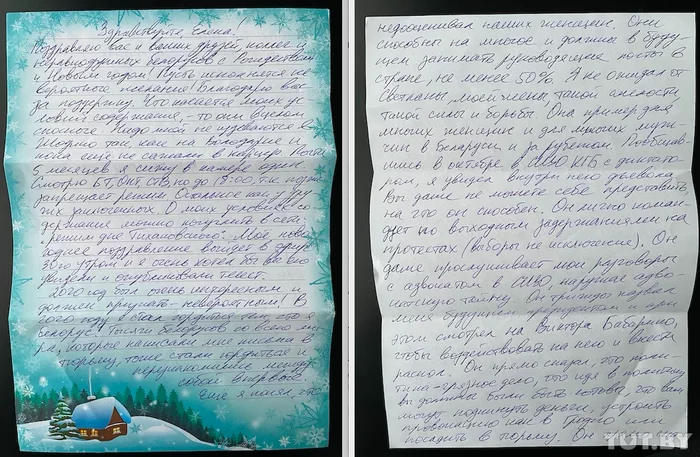 Здравствуйте, Елена!
Поздравляю вас и ваших друзей, коллег и
неравнодушных белорусов с Рождеством
и Новым годом! Пусть исполнятся не-
вероятные желания! Благодарю вас
за поддержку. Что касается моих ус-
ловий содержания, – то они вполне
Надо мной не издеваются в
Жодино так, как на Володарке и
пока еще не сажали в карцер. Почти
5 месяцев я сижу в камере один.
Смотрю БТ, ОНТ, СТВ, но до 18:00, т.к. позже
запрещает режим. Остальное как у дру-
гих заключенных. О моих условиях со-
держания можно погуглить в сети:
режим дня Тихановского. Мое ново-
годнее поздравление войдет в эфир
30го утром и я очень хотел бы вы его
увидели и опубликовали текст.
2020 год был очень интересным и
должен признать – невероятным! В
этом году я стал гордиться тем, что я
белорус! Тысячи белорусов со всего ми-
ра, которые написали мне письма в
тюрьму, тоже стали гордиться и
перезнакомились между
собой впервые.
Еще я понял, что
недооценивал наших женщин. Они
способны на многое и должны в буду-
щем занимать руководящие посты в
стране, не менее 50%. Я не ожидал от
Светланы, моей жены такой смелости,
такой силы и борьбы. Она пример для
многих женщин и для многих муж-
чин в Беларуси и за рубежом. Пообщав-
шись в октябре в СИЗО КГБ с диктато-
ром, я увидел внутри него дьявола.
Вы даже не можете себе представить
на что он способен. Он лично коман-
дует по выходным задержаниями на
протестах (выборы не исключение). Он
даже прослушивает мои разговоры
с адвокатом в СИЗО, нарушая адво-
катскую тайну. Он трижды назвал
меня будущим президентом и при
этом смотрел на Виктора Бабарико,
чтобы воздействовать на него и внести
раскол. Он прямо сказал, что поли-
тика – грязное дело, что идя в политику
вы должны были быть готовы, что вам
могут подкинуть деньги, устроить
провокацию как в Гродно или
посадить в тюрьму. Он
TUT.BY